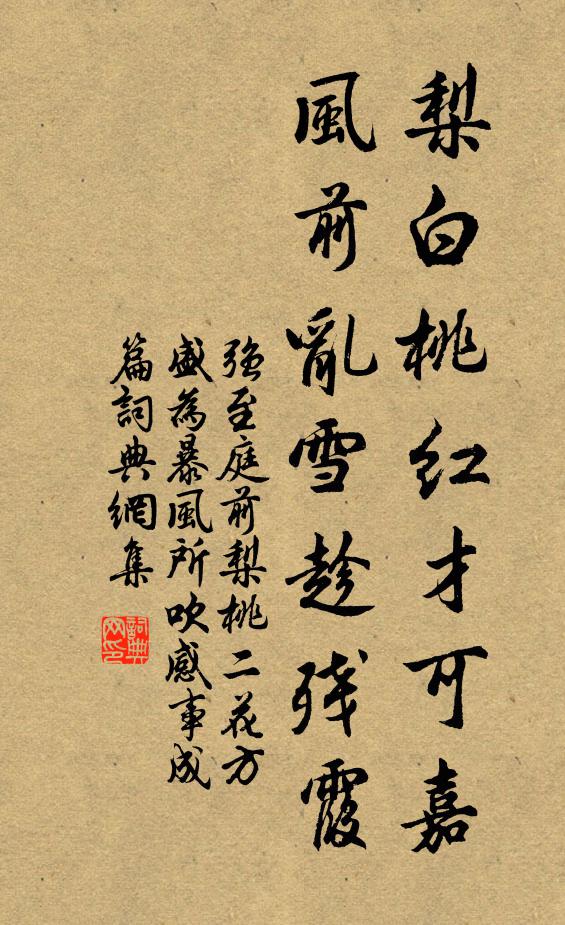 梨白桃红才可嘉
風前亂雪趁残霞
強至庭前梨桃二花方
盛為暴風所吹感事成
篇詞典網集
詞典网印